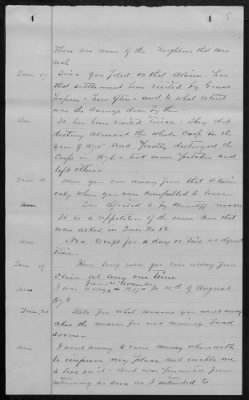 There are some of the Neighbors that was
such
Ques 17 Since you filed on that Claim. Has
that settlement been visited by Grass
hoppers, & how often and to what extent
was the damage done by them
Ans It has been visited twice. They did
destroy almost the whole Crop in the
year of 1875 And Partly destroyed the
Crop in 1876 & took some potatoes and
left others
Ques 18 Were you ever away from that Claim
only when you were compelled to leave
Ques Objected to by
It is a repetition of the same One that
was asked in Ques No 12
Ans No. Except for a day or two at
time.
Ques 19 How long were you ever away from
Claim at any one time
Ans I was away to 10th of August
1876
Ques. 20 State for what reason you went away
also the reason for not returning back
sooner.
Ans I went away to earn money wherewith
to improve my place and enable me
to live on it. And was prevented from
returning as soon as I intended to